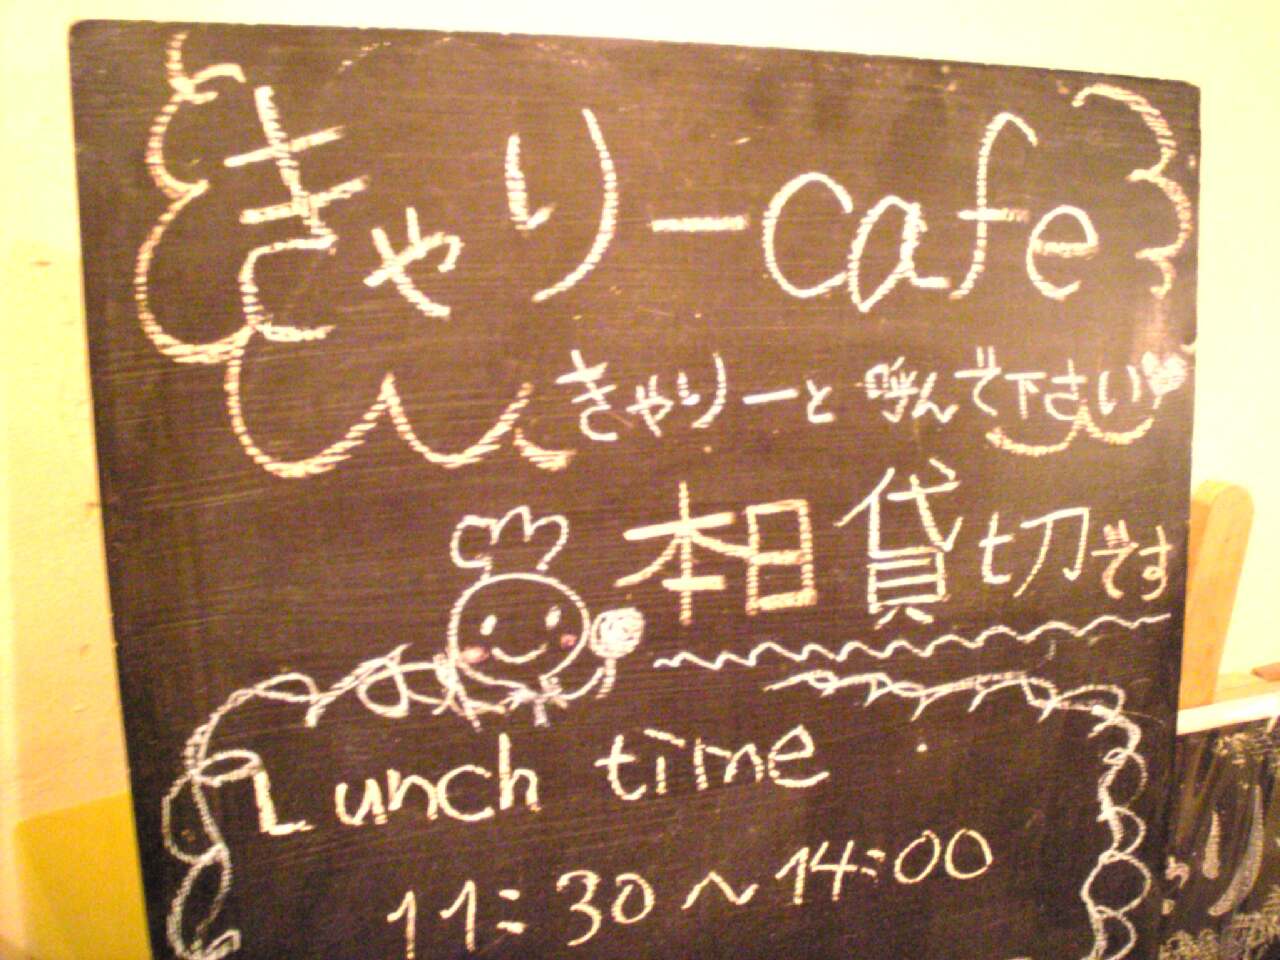 きゃりーcafe
きゃりーと呼んで下さい♥
本日貸切です
Lunch time
11:30～14:00